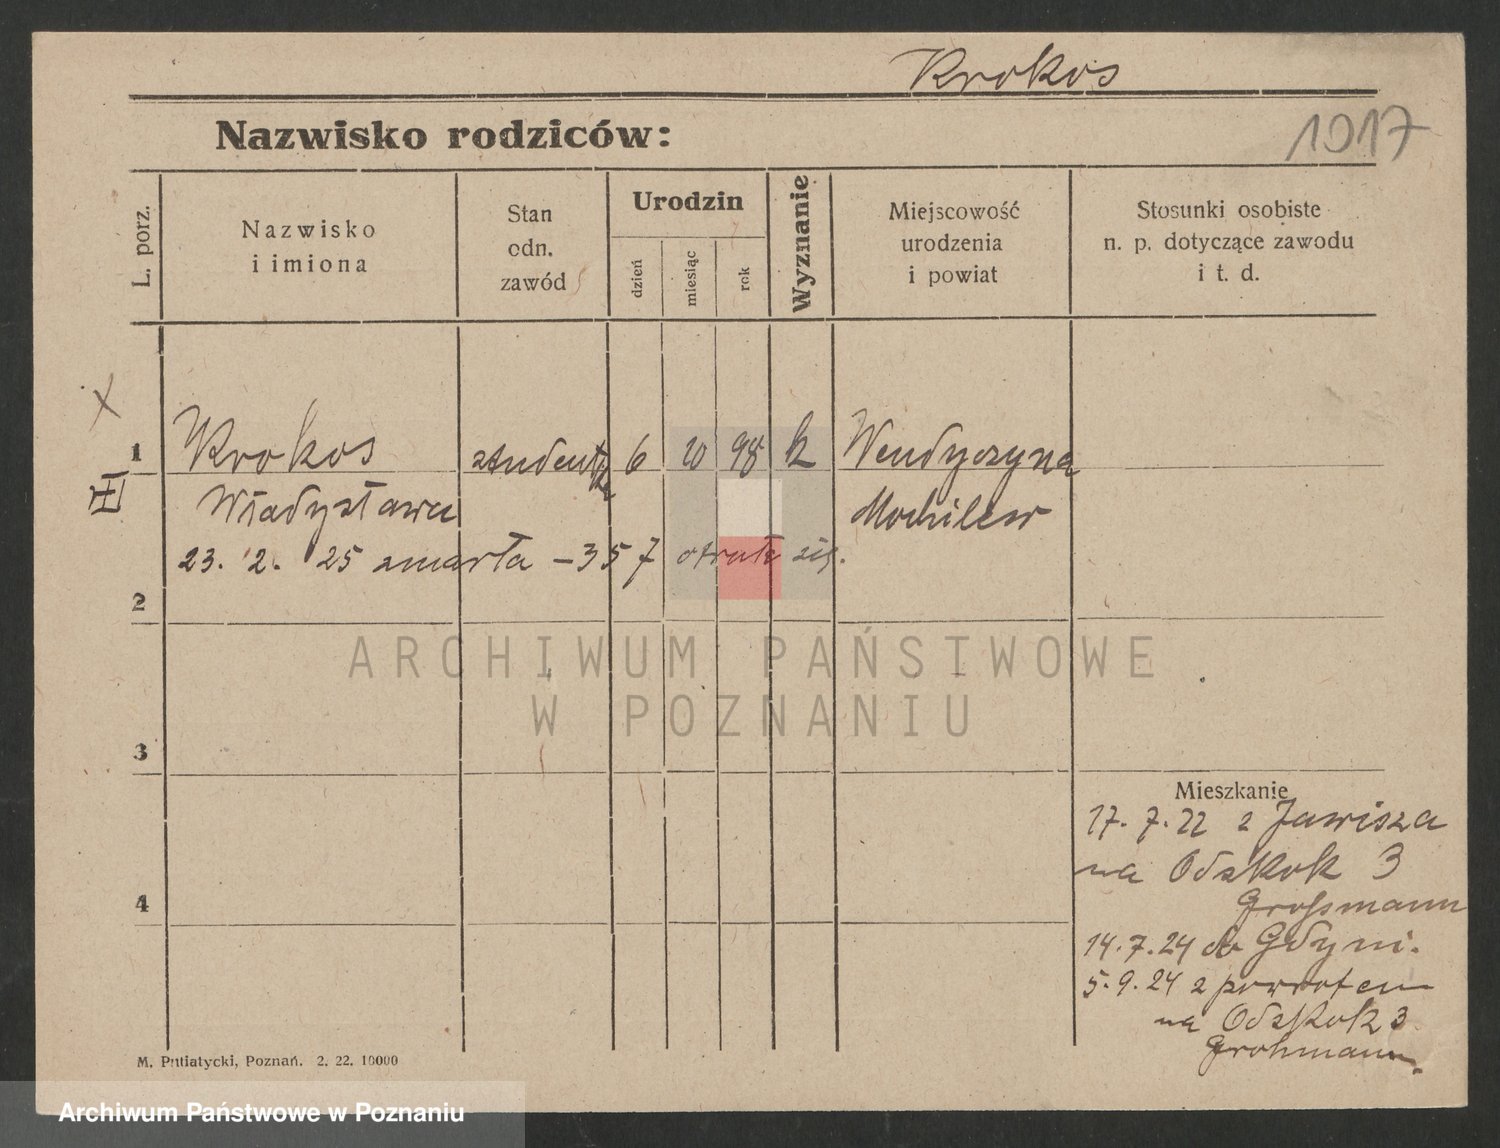 Krokos
Nazwisko rodziców:
1017
L. porz.
Nazwisko
i imiona
Stan
odn.
zawód
Urodzin
dzień
miesiąc
rok
Wyznanie
Miejscowość
urodzenia
i powiat
Stosunki osobiste
n. p. dotyczące zawodu
i t. d.
X
1 Krokos studentka 6 10 98 k Wendyczyna
III
Władysława Mochilew
23. 2. 25 zmarła - 357 otruła się.
2
ARCHIWUM PAŃSTWOWE
W POZNANIU
3
Mieszkanie
17. 7. 22 z
na Odskok 3
Großmann
4
14. 7. 24 do Gdyni.
5. 9. 24 z powrotem
na Odskok 3
Grohmann.
M. Putiatycki, Poznań. 2. 22. 10000
Archiwum Państwowe w Poznaniu